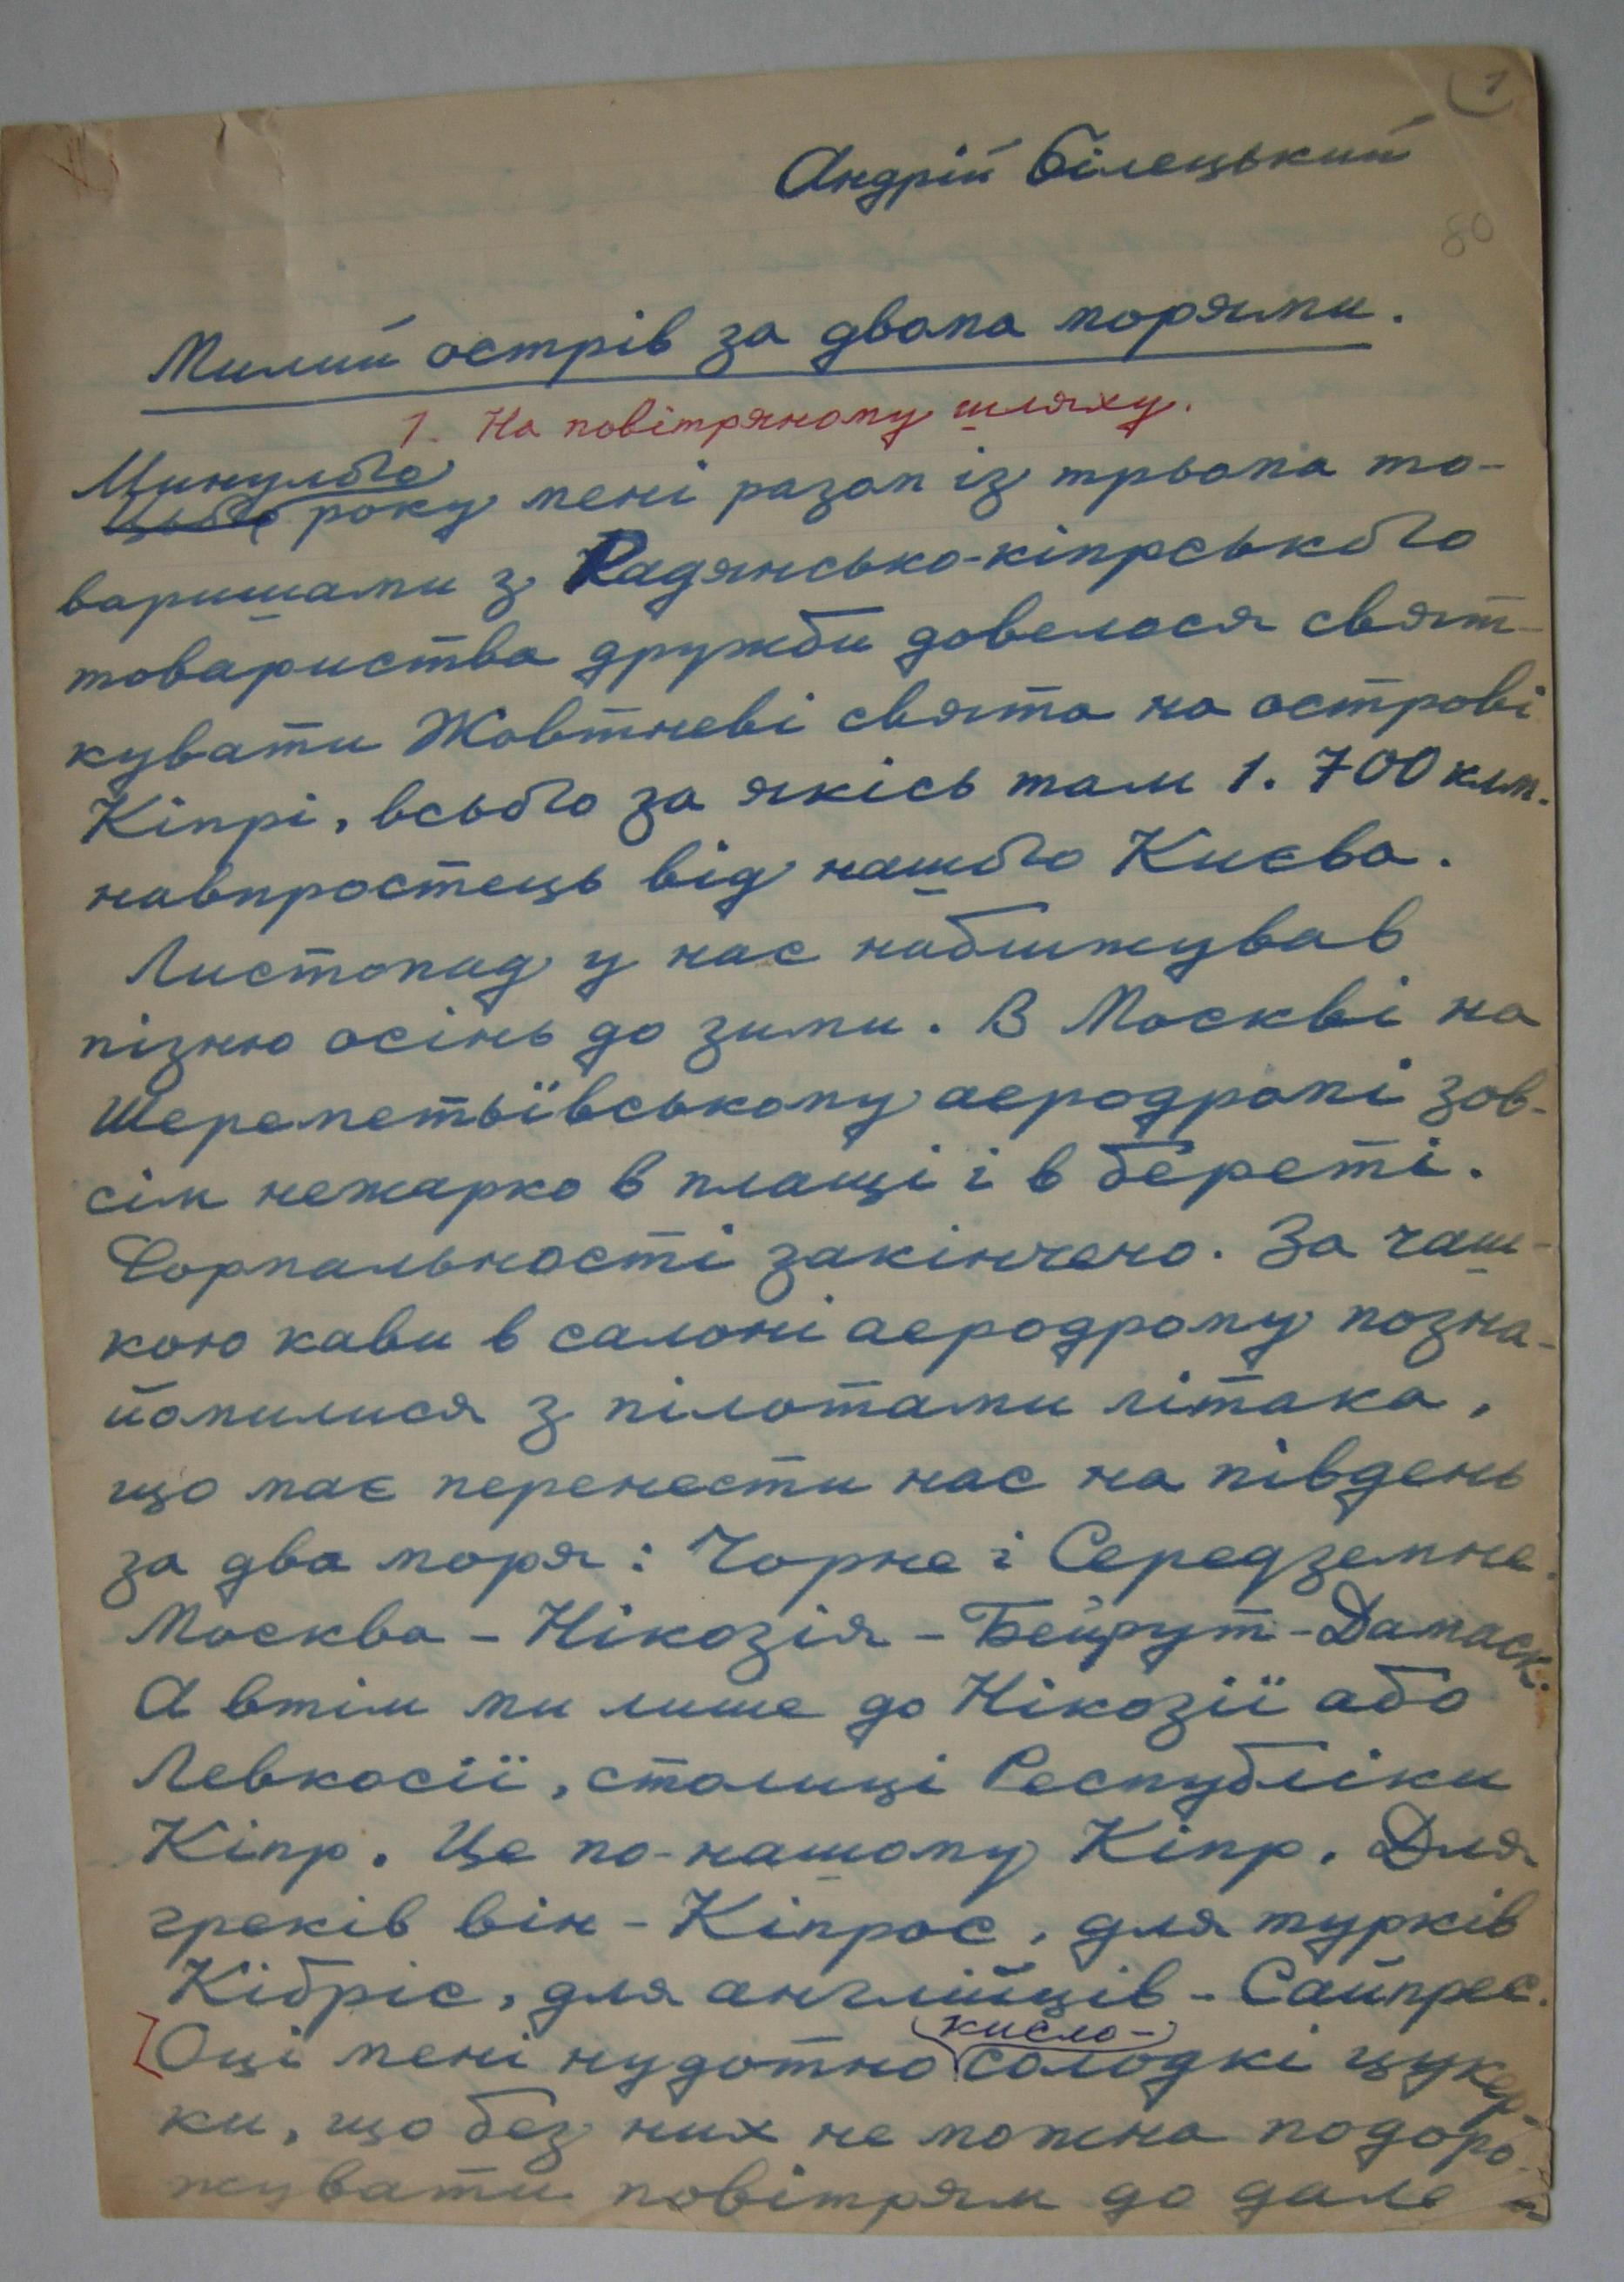 1
Андрій Білецький
80
Милий острів за двома морями.
1. На повітряному шляху.
Минулого
Цього року мені разом із трьома то-
варишами з Радянсько-кіпрського
товариства дружби довелося свят-
кувати Жовтневі свята на острові
Кіпрі, всього за якісь там 1.700 клм.
навпростець від нашого Києва.
Листопад у нас наближував
пізню осінь до зими. В Москві на
Шереметьївському аеродромі зов-
сім нежарко в плащі і в береті.
Формальності закінчено. За чаш-
кою кави в салоні аеродрому позна-
йомилися з пілотами літака,
що має перенести нас на південь
за два моря: Чорне і Середземне.
Москва - Нікозія - Бейрут - Дамаск.
А втім ми лише до Нікозії або
Левкосії, столиці Республіки
Кіпр. Це по-нашому Кіпр. Для
греків він - Кіпрос, для турків
Кібріс, для англійців - Сайпрес.
кисло-
[Оці мені нудотно солодкі цукер-
ки, що без них не можна подоро-
жувати повітрям до дале